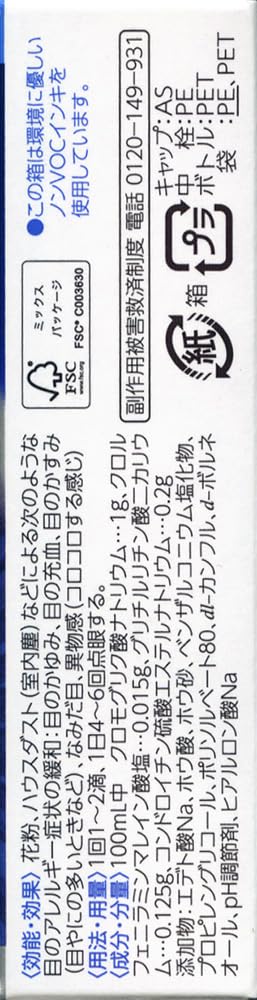 〈効能・効果〉花粉、ハウスダスト（室内塵）などによる次のような
目のアレルギー症状の緩和：目のかゆみ、目の充血、目のかすみ
（目やにの多いときなど）、なみだ目、異物感（コロコロする感じ）
〈用法・用量〉1回1〜2滴、1日4〜6回点眼する。
〈成分・分量〉100mL中　クロモグリク酸ナトリウム…1g、クロル
フェニラミンマレイン酸塩…0.015g、グリチルリチン酸二カリウ
ム…0.125g、コンドロイチン硫酸エステルナトリウム…0.2g
添加物：エデト酸Na、ホウ酸、ホウ砂、ベンザルコニウム塩化物、
プロピレングリコール、ポリソルベート80、dl-カンフル、d-ボルネ
オール、pH調節剤、ヒアルロン酸Na
●この箱は環境に優しい
ノンVOCインキを
使用しています。
ミックス
パッケージ
FSC® C003630
FSC
www.fsc.org
副作用被害救済制度 電話 0120-149-931
紙
箱
プラ
キャップ：AS
中栓：PE
ボトル：PET
袋：PE、PET